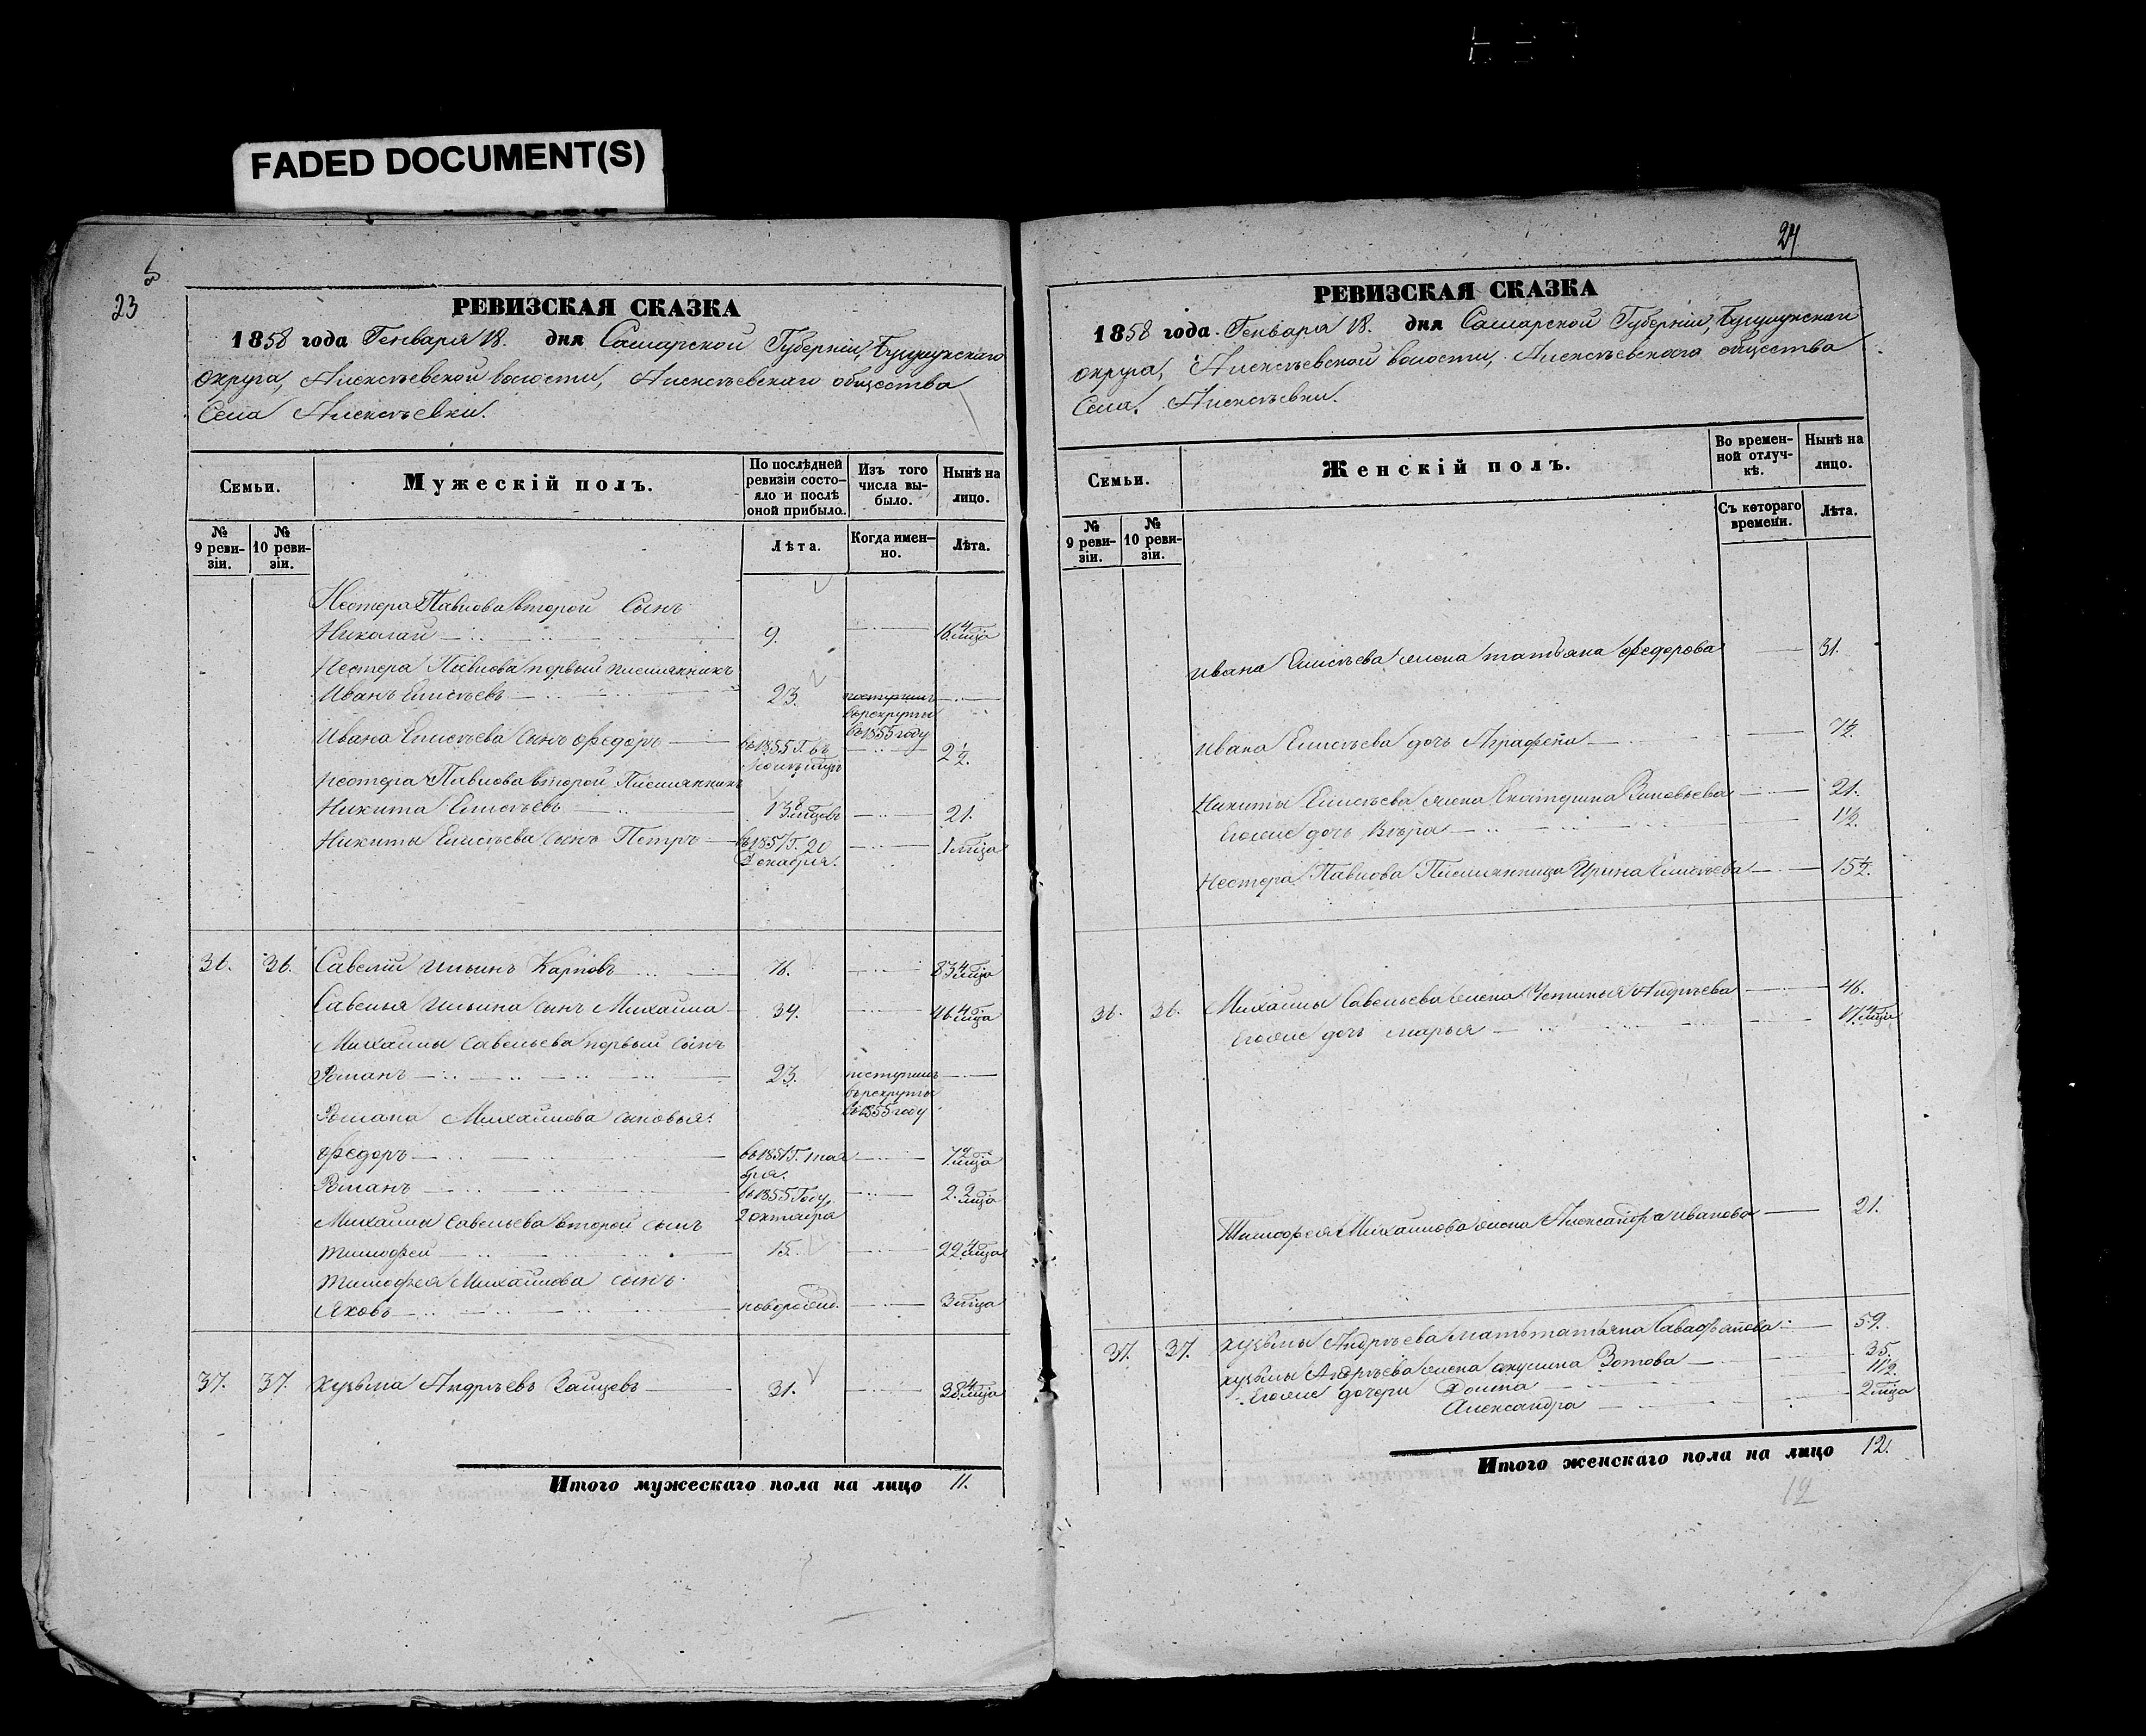 FADED DOCUMENT(S)
23
РЕВИЗСКАЯ СКАЗКА
1858 года Генваря 18. дня Самарской Губерніи, Бузулукскаго
Округа, Алексѣевской волости, Алексѣевскаго общества
Села Алексѣевки.
Семьи.
Мужескій полъ.
По послѣдней ревизіи состояло и послѣ оной прибыло.
Изъ того числа выбыло.
Нынѣ на лицо.
№ 9 ревизіи.
№ 10 ревизіи.
Лѣта.
Когда именно.
Лѣта.
Нестера Павлова второй Сынъ
Николай 9. 16 4 мца
Нестера Павлова первый племянникъ
Иванъ Елисѣевъ 23. поступилъ
въ рекруты
въ 1855 году
Ивана Елисѣева сынъ Федоръ въ 1855 Г. 2 1/2.
Нестера Павлова второй Племянникъ
Никита Елисѣевъ 13 8 мцовъ 21.
Никиты Елисѣева сынъ Петръ въ 1857 Г. 20 1 мца
Декабря.
36. 36. Савелій Ильинъ Карповъ 76. 83 4 мца
Савелья Ильина сынъ Михаила 39. 46 4 мца
Михайлы Савельева первый сынъ
Романъ 23. поступилъ
въ рекруты
въ 1855 году
Романа Михайлова сыновья:
Федоръ въ 1851 Г. 7 2 мца
Романъ въ 1855 Году, 2. 2 мца
2 октября
Михайлы Савельева второй сынъ
Тимофей 15. 22 4 мца
Тимофея Михайлова сынъ
Яковъ новорожд. 3 мца
37. 37. Кузьма Андрѣевъ Зайцевъ 31. 38 4 мца
Итого мужескаго пола на лицо 11.
24
РЕВИЗСКАЯ СКАЗКА
1858 года Генваря 18. дня Самарской Губерніи, Бузулукскаго
округа, Алексѣевской волости, Алексѣевскаго общества
Села Алексѣевки.
Семьи.
Женскій полъ.
Во временной отлучкѣ.
Нынѣ на лицо.
№ 9 ревизіи.
№ 10 ревизіи.
Съ котораго времени.
Лѣта.
Ивана Елисѣева жена Татьяна Федорова 31.
Ивана Елисѣева дочь Аграфена 7 1/2.
Никиты Елисѣева жена Екатерина Зиновьева 21.
Егоже дочь Вѣра 1 1/2.
Нестера Павлова Племянница Ирина Елисѣева 15 1/2.
36. 36. Михайлы Савельева жена Устинья Андрѣева 46.
Егоже дочь Марья 17 4 мца
Тимофея Михайлова жена Александра Иванова 21.
37. 37. Кузьмы Андрѣева мать Татьяна 59.
Кузьмы Андрѣева жена Акулина Зотова 35.
Егоже дочери Домна 11 1/2.
Александра 2 мца
Итого женскаго пола на лицо 12.
12